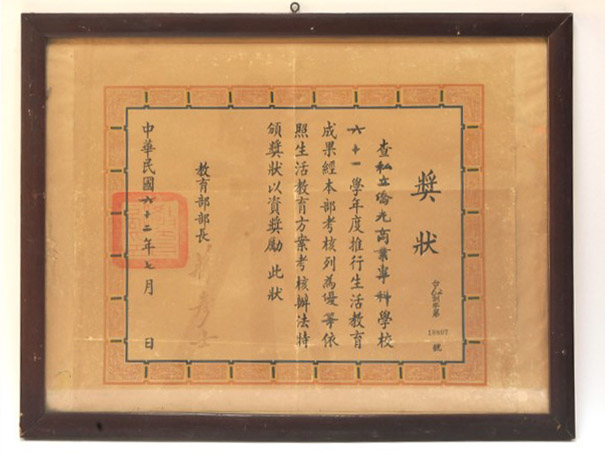 獎狀
字第
18807
號
查私立僑光商業專科學校
六十一學年度推行生活教育
成果經本部考核列為優等依
照生活教育方案考核辦法特
頒獎狀以資獎勵 此狀
教育部部長
中華民國六十二年七月 日